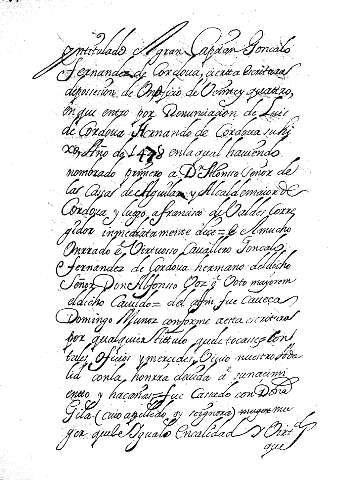 yntitulado El gran Capitan Goncalo
Fernandez de Cordova, cierta escritura
deposicion, de Oficio de Veinte y quatro,
en que entro por Renunciacion de Luis
de Cordova Hernando de Cordova su hijo
Año de 1478 en la qual haviendo
nombrado primero a Dn Alonso Señor de
las Casas de Aguilar, y Alcalde maior de
Cordova y luego, a francisco de Valdes Corre
gidor inmediatamente dice = e El mucho
onrrado e Virtuosso Cavallero Goncalo
Fernandez de Cordova hermano del dicho
Señor Don Alfonsso Voz y Voto mayor en
el dicho Cavildo = del dho fue caveça
Domingo Muñoz conforme a esta escritura
por qualquier titulo que le tocasse con
tales oficios y mercedes
con la honrra devida a su naçimi
ento y hacañas = fue Cassado con Doña
Gila (cuio apellido, se ygnora) mu
ger que le Ygualo en calidad y Virtd
que